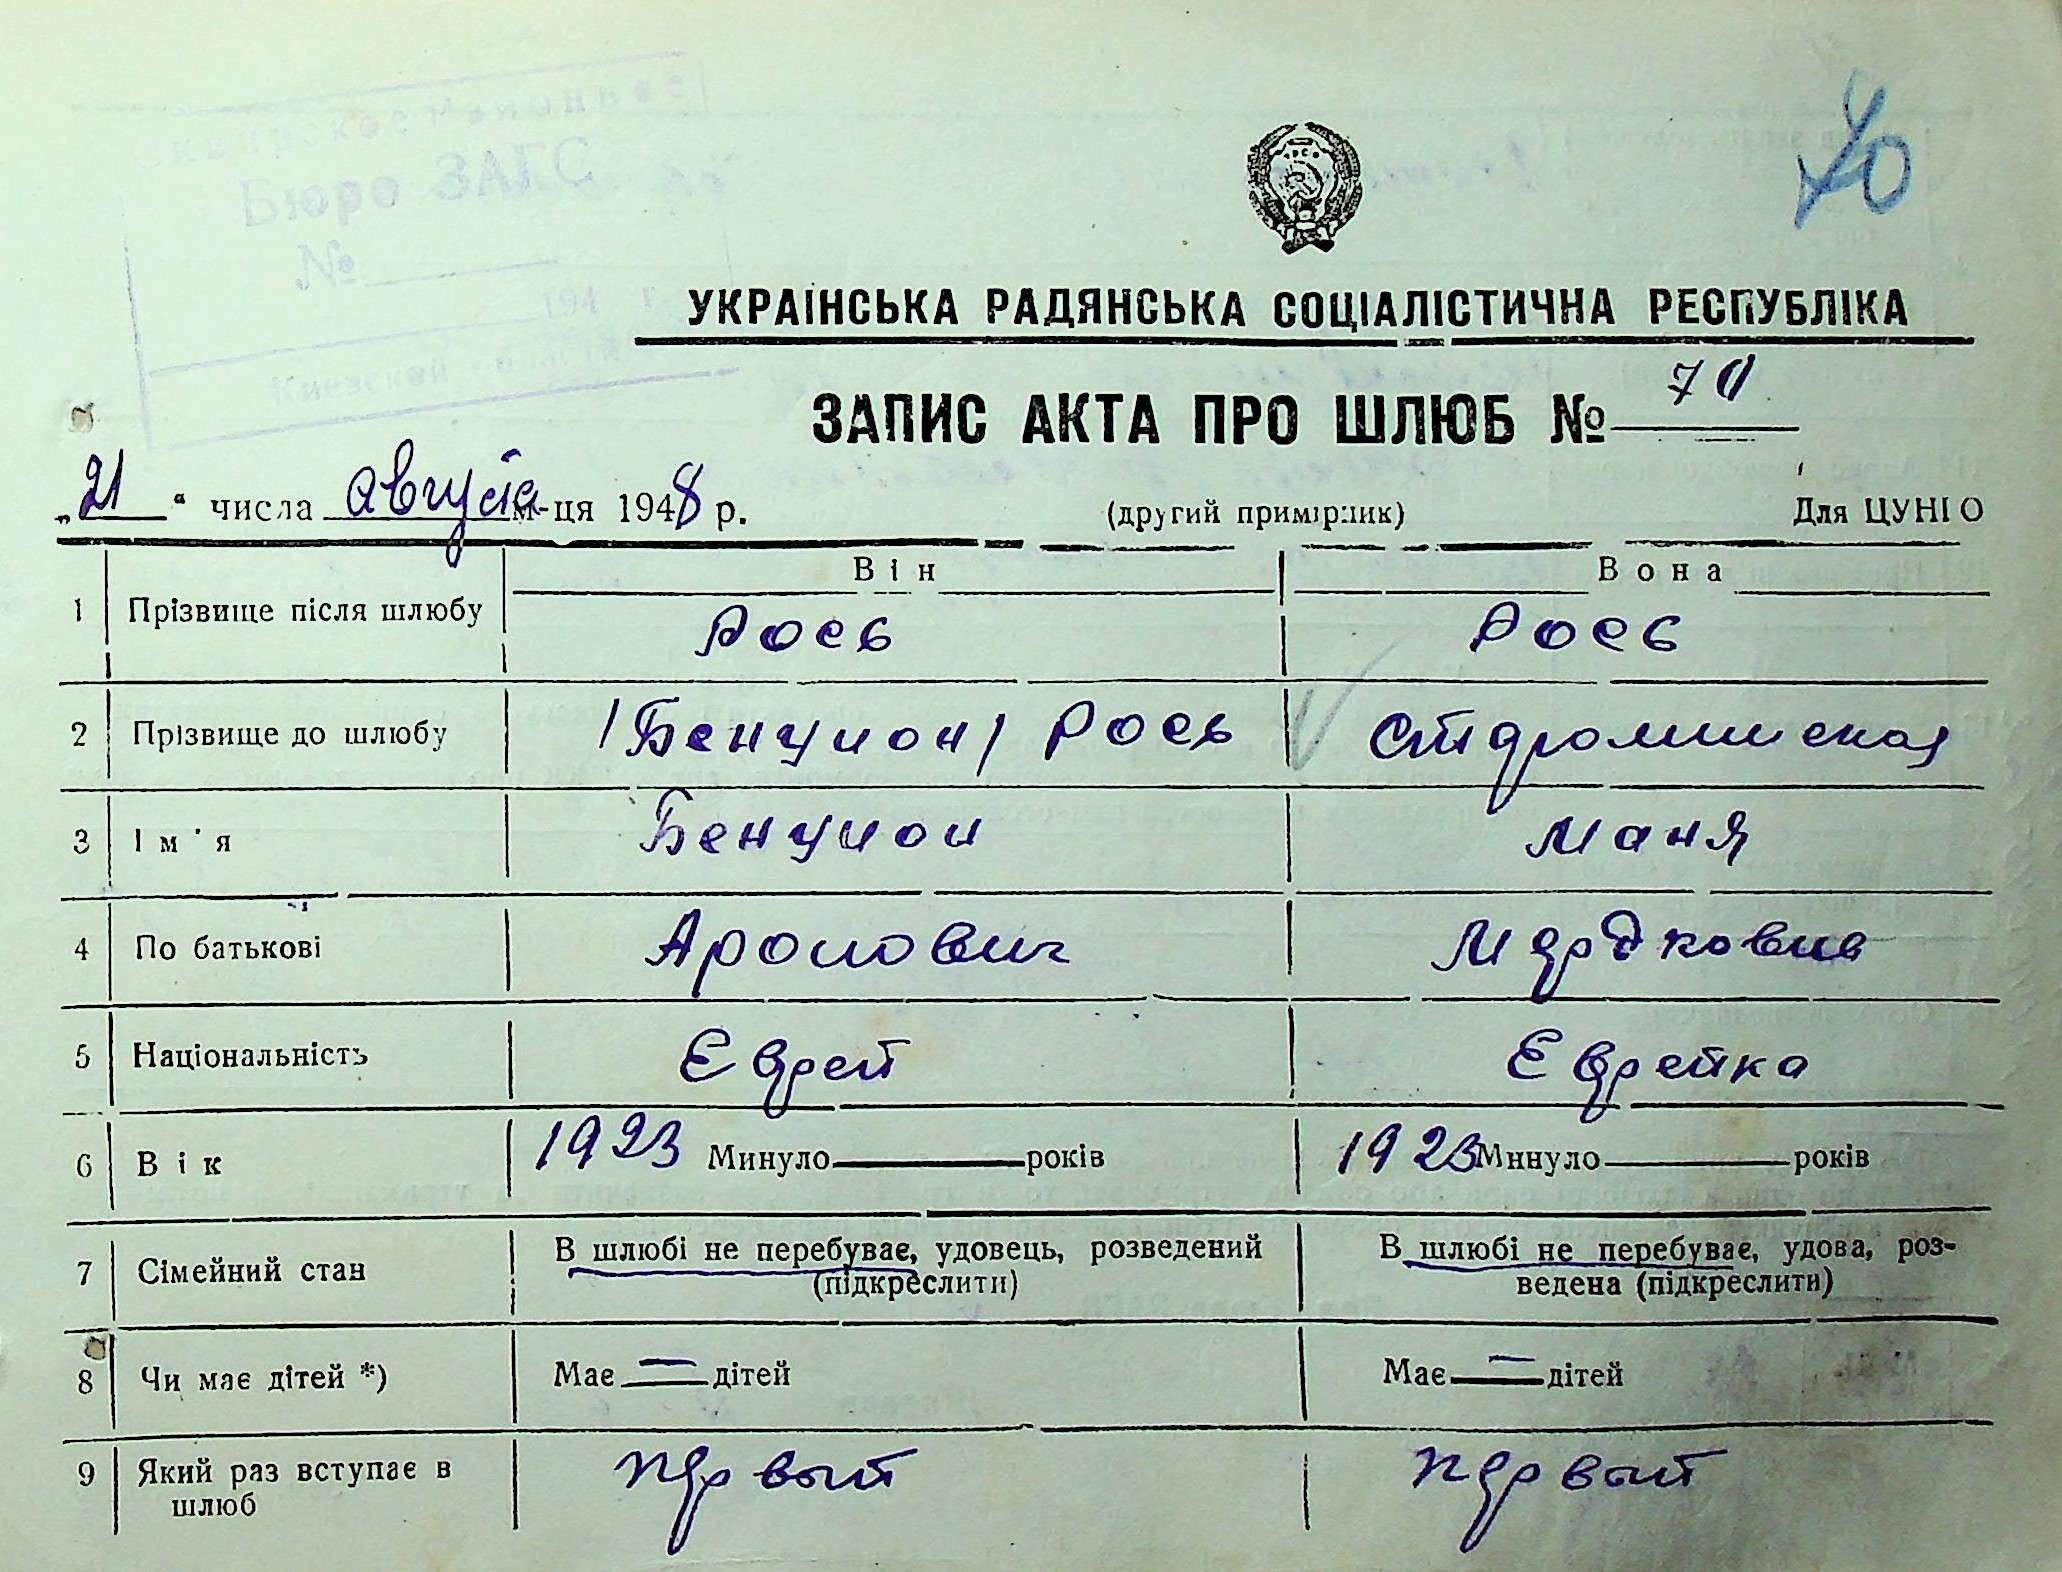 Сквирское районное
Бюро ЗАГС
№
194 г.
Киевской области
70
УКРАЇНСЬКА РАДЯНСЬКА СОЦІАЛІСТИЧНА РЕСПУБЛІКА
ЗАПИС АКТА ПРО ШЛЮБ № 70
„21“ числа августа м-ця 1948 р. (другий примірник) Для ЦУНГО
Він Вона
1 Прізвище після шлюбу Роев Роев
2 Прізвище до шлюбу /Бенцион/ Роев
3 Ім'я Бенцион Маня
4 По батькові Аронович Мордковна
5 Національність Еврей Еврейка
6 Вік 1923 Минуло років 1923 Минуло років
7 Сімейний стан В шлюбі не перебуває, удовець, розведений (підкреслити) В шлюбі не перебуває, удова, роз-
ведена (підкреслити)
8 Чи має дітей *) Має — дітей Має — дітей
9 Який раз вступає в первый первый
шлюб